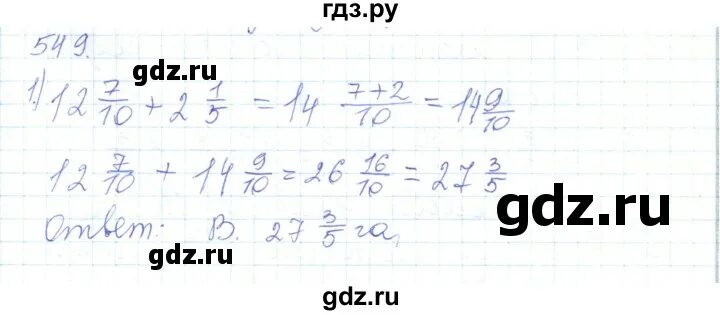 гдз.ру
549.
gdz.ru
1) 12 7/10 + 2 1/5 = 14 (7+2)/10 = 14 9/10
12 7/10 + 14 9/10 = 26 16/10 = 27 3/5
gdz.ru
Ответ: В. 27 3/5 га,
gdz.ru
gdz.ru